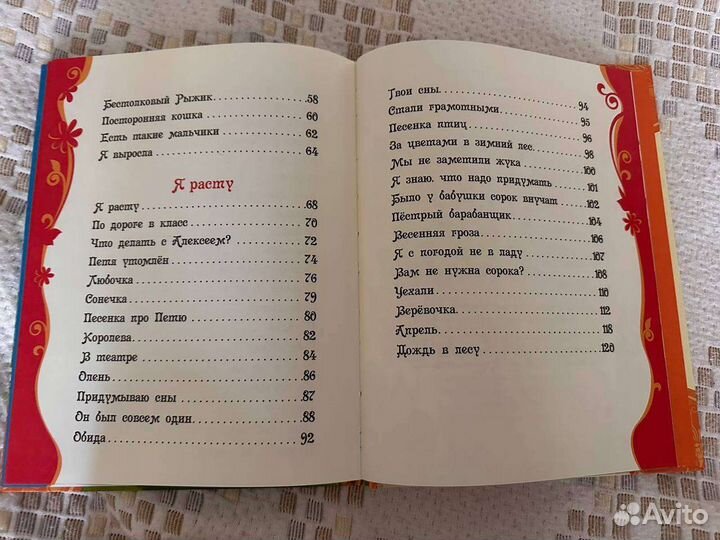 Бестолковый Рыжик 58
Посторонняя кошка 60
Есть такие мальчики 62
Я выросла 64
Я расту
Я расту 68
По дороге в класс 70
Что делать с Алексеем? 72
Петя утомлён 74
Любочка 76
Сонечка 79
Песенка про Петю 80
Королева 82
В театре 84
Олень 86
Придумываю сны 87
Он был совсем один 88
Обида 92
Твои сны 94
Стали грамотными 95
Песенка птиц 96
За цветами в зимний лес 98
Мы не заметили жука 100
Я знаю, что надо придумать 101
Было у бабушки сорок внучат 102
Пёстрый барабанщик 104
Весенняя гроза 106
Я с погодой не в ладу 107
Вам не нужна сорока? 108
Уехали 110
Верёвочка 112
Апрель 118
Дождь в лесу 120
Avito